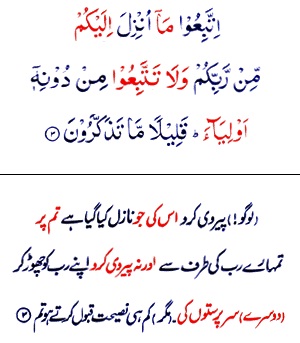 اِتَّبِعُوْا مَآ اُنْزِلَ اِلَيْكُمْ
مِّنْ رَّبِّكُمْ وَلَا تَتَّبِعُوْا مِنْ دُوْنِهٖٓ
اَوْلِيَآءَ ؕ قَلِيْلًا مَّا تَذَكَّرُوْنَ ۝۳
(لوگو!) پیروی کرو اس کی جو نازل کیا گیا ہے تم پر
تمہارے رب کی طرف سے اور نہ پیروی کرو اپنے رب کو چھوڑ کر
(دوسرے) سرپرستوں کی۔ (مگر) کم ہی نصیحت قبول کرتے ہو تم ۝۳